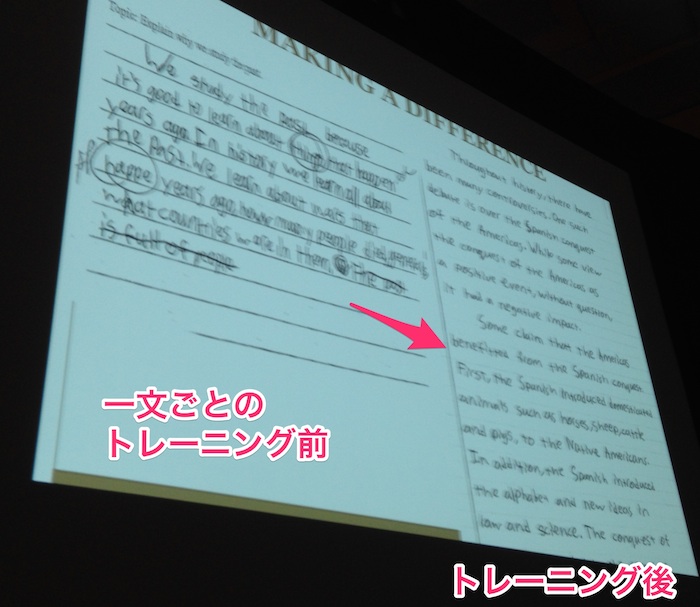 MAKING A DIFFERENCE
Topic: Explain why we study the past.
We study the past because
it's good to learn about things that happen
years ago. In history we learn all about
the past. We learn about wars that
happe years ago, how many people died,
what countries were in them, The past
is full of people
Throughout history, there have
been many controversies. One such
debate is over the Spanish conquest
of the Americas. While some view
the conquest of the Americas as
a positive event, without question,
it had a negative impact.
Some claim that the Americas
benefitted from the Spanish conquest.
First, the Spanish introduced domesticated
animals such as horses, sheep, cattle
and pigs, to the Native Americans.
In addition, the Spanish introduced
the alphabet and new ideas in
law and science. The conquest of
一文ごとの
トレーニング前
トレーニング後